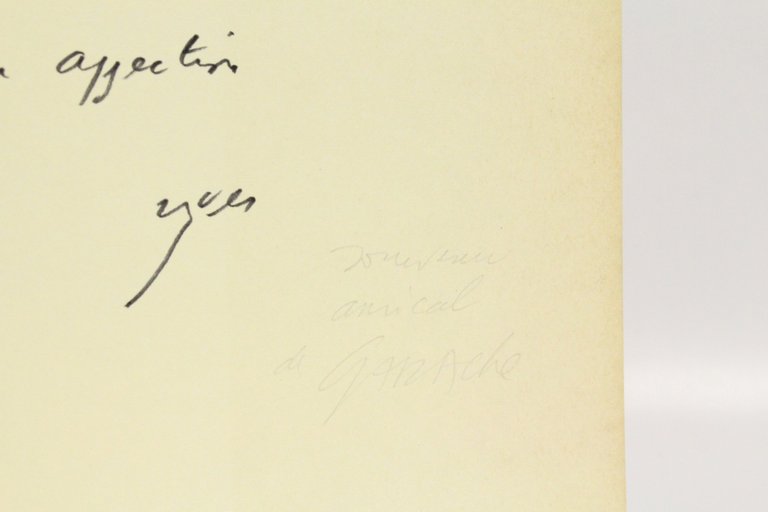 affection
yves
souvenir
amical
de GARAche